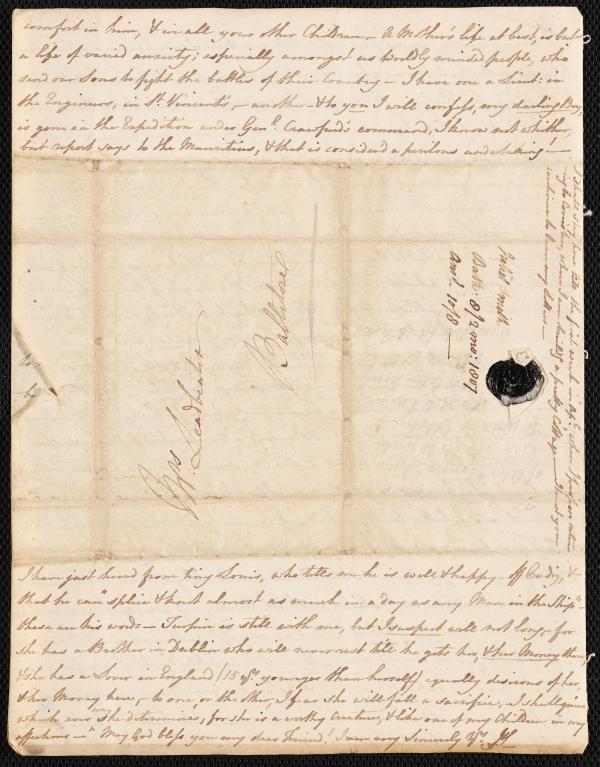 comfort in him, & in all your other Children – A Mother's life at best, is but
a life of varied anxiety; especially amongst us Worldly minded people, who
send our Sons to fight the battles of their Country – I have one a Lieut: in
the Engineers, in St. Vincent's, – another – & to you I will confess, my darling Boy,
is gone in the Expedition under Genl. Craufurd's command, I know not whither,
but report says to the Mauritius, & that is considered a perilous undertaking! –
I shall stay here till the first week in when I propose return
ing to where I am a pretty Cottage –
continue to
Mrs. Leadbeater
Ballitore
Bath: 8/2 mo: 1807
Ansd. 10/3 —
I have just heard from tiny Louis, who tells me he is well & happy – off Cadiz, &
that he can "splice & knot almost as much in a day as any Man in the Ship" –
these are his words – is still with me, but I suspect will not long, for
she has a Brother in Dublin who will never rest till he gets her, & her Money there,
& she has a Lover in England (15 yrs. younger than herself) equally desirous of her,
& her Money here, – to one, or the other, I fear she will fall a sacrifice, I shall grieve
which ever way she determines, for she is a worthy creature, & like one of my Children in my
affections – May God bless you my dear Friend! I am very Sincerely Yrs.